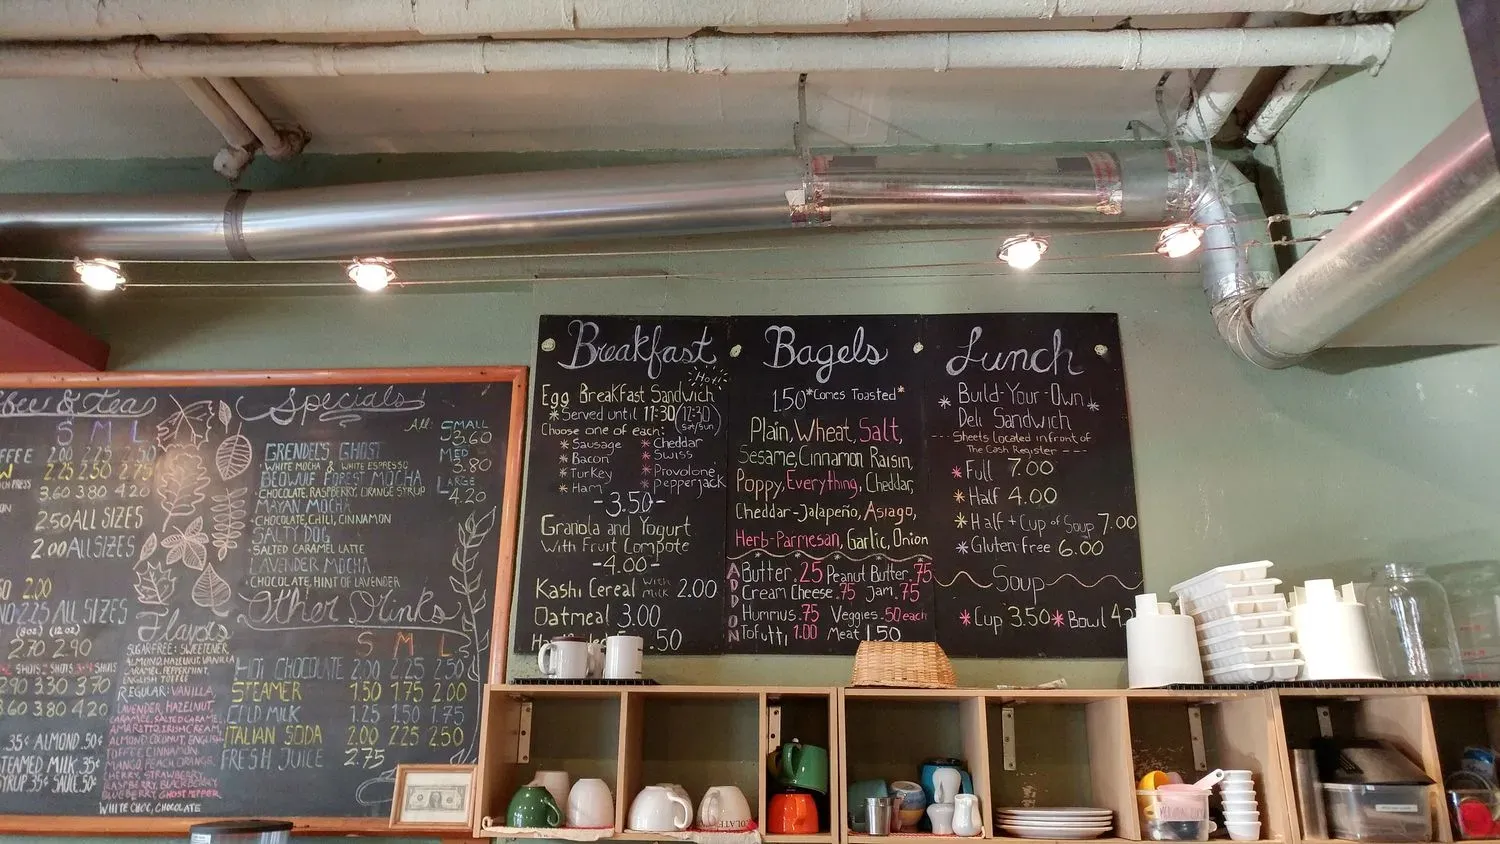 Coffee & Tea
S M L
2.00 2.25 2.50
2.25 2.50 2.75
3.60 3.80 4.20
2.50 ALL SIZES
2.00 ALL SIZES
2.00
2.25 ALL SIZES
(8oz) (12oz)
2.70 2.90
2.90 3.30 3.70
3.60 3.80 4.20
.35¢ ALMOND .50¢
STEAMED MILK .35¢
SYRUP .35¢ SAUCE .50¢
Flavors
SUGARFREE: SWEETENER,
ALMOND, HAZELNUT, VANILLA
CARAMEL, PEPPERMINT,
ENGLISH TOFFEE
REGULAR: VANILLA,
LAVENDER, HAZELNUT,
CARAMEL, SALTED CARAMEL,
AMARETTO, IRISH CREAM,
ALMOND, COCONUT, ENGLISH
TOFFEE, CINNAMON,
MANGO, PEACH, ORANGE,
CHERRY, STRAWBERRY,
RASPBERRY, BLACKBERRY,
BLUEBERRY, GHOST PEPPER
WHITE CHOC, CHOCOLATE
Specials
All: SMALL
3.60
MED
3.80
LARGE
4.20
GRENDEL'S GHOST
• WHITE MOCHA & WHITE ESPRESSO
BEOWULF FOREST MOCHA
• CHOCOLATE, RASPBERRY, ORANGE SYRUP
MAYAN MOCHA
• CHOCOLATE, CHILI, CINNAMON
SALTY DOG
• SALTED CARAMEL LATTE
LAVENDER MOCHA
• CHOCOLATE, HINT OF LAVENDER
Other Drinks
S M L
HOT CHOCOLATE 2.00 2.25 2.50
STEAMER 1.50 1.75 2.00
COLD MILK 1.25 1.50 1.75
ITALIAN SODA 2.00 2.25 2.50
FRESH JUICE 2.75
Breakfast
Hot!
Egg Breakfast Sandwich
*Served until 11:30 (12:30 Sat/Sun)
Choose one of each:
* Sausage * Cheddar
* Bacon * Swiss
* Turkey * Provolone
* Ham * Pepperjack
-3.50-
Granola and Yogurt
With Fruit Compote
-4.00-
Kashi Cereal with Milk 2.00
Oatmeal 3.00
.50
Bagels
1.50 *Comes Toasted*
Plain, Wheat, Salt,
Sesame, Cinnamon Raisin,
Poppy, Everything, Cheddar,
Cheddar-Jalapeño, Asiago,
Herb-Parmesan, Garlic, Onion
ADD ON
Butter .25 Peanut Butter .75
Cream Cheese .75 Jam .75
Hummus .75 Veggies .50 each
Tofutti 1.00 Meat 1.50
Lunch
* Build-Your-Own *
Deli Sandwich
--- Sheets located in front of
The Cash Register ---
* Full 7.00
* Half 4.00
* Half + Cup of Soup 7.00
* Gluten-Free 6.00
Soup
* Cup 3.50 * Bowl